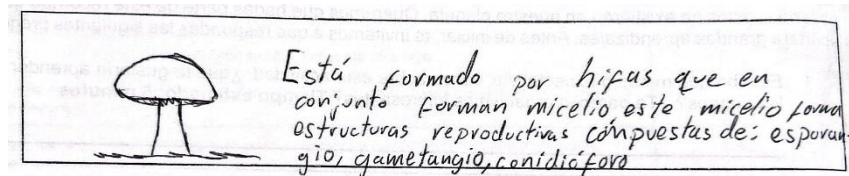 Está formado por hifas que en
conjunto forman micelio este micelio forma
estructuras reproductivas compuestas de: esporan-
gio, gametangio, conidióforo